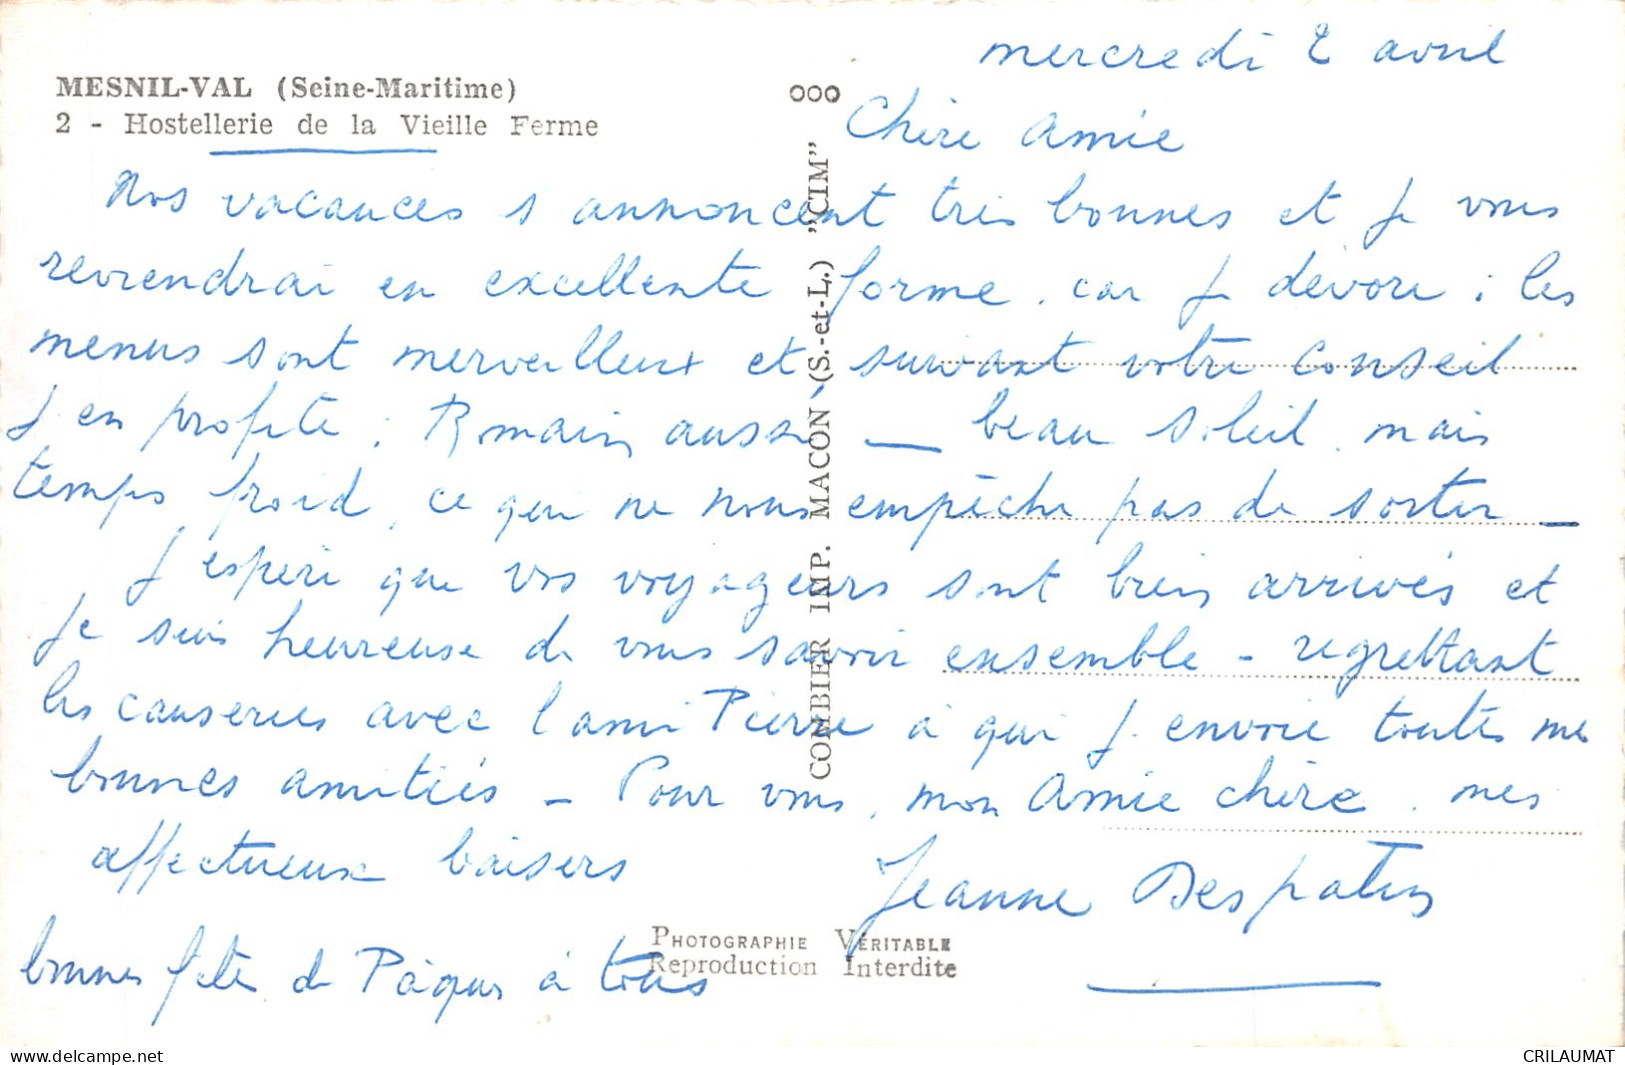 mercredi 2 avril
MESNIL-VAL (Seine-Maritime)
2 - Hostellerie de la Vieille Ferme
Chère Amie
Nos vacances s'annoncent très bonnes et je vous
reviendrai en excellente forme, car je dévore ; les
menus sont merveilleux et suivant votre conseil
j'en profite ; Romain aussi — beau soleil, mais
temps froid, ce qui ne nous empêche pas de sortir —
J'espère que vos voyageurs sont bien arrivés et
je suis heureuse de vous savoir ensemble - regrettant
les causeries avec l'ami Pierre à qui j'envoie toutes mes
bonnes amitiés - Pour vous, mon Amie chère, mes
affectueux baisers
Jeanne Despatin
bonnes fêtes de Pâques à tous
COMBIER IMP. MACON (S.-et-L.) "CIM"
PHOTOGRAPHIE VÉRITABLE
Reproduction Interdite
www.delcampe.net
CRILAUMAT